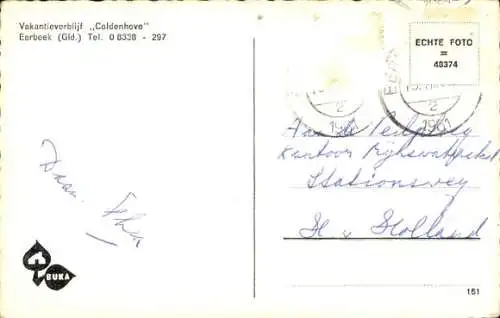 Vakantieverblijf „Coldenhove"
Eerbeek (Gld.) Tel. 0 8338 - 297
ECHTE FOTO
=
48374
2
1961
2
1961
Aan de
Kantoor Rijkswaterstaat
Stationsweg
H v Holland
Daan
BUKA
151